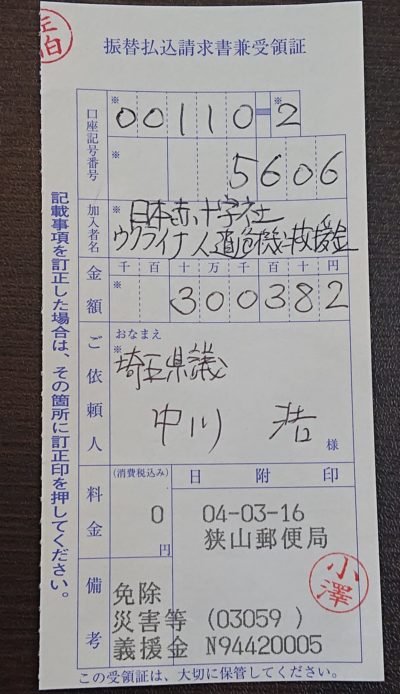 振替払込請求書兼受領証
口座記号番号
※
00110-2
※
5606
加入者名
※
日本赤十字社
ウクライナ人道危機救援金
金額
千百十万千百十円
※
300382
ご依頼人
おなまえ
※
埼玉県議
中川 浩
様
料金
(消費税込み)
0
円
日附印
04-03-16
狭山郵便局
小澤
備考
免除
災害等 (03059 )
義援金 N94420005
この受領証は、大切に保管してください。
記載事項を訂正した場合は、その箇所に訂正印を押してください。